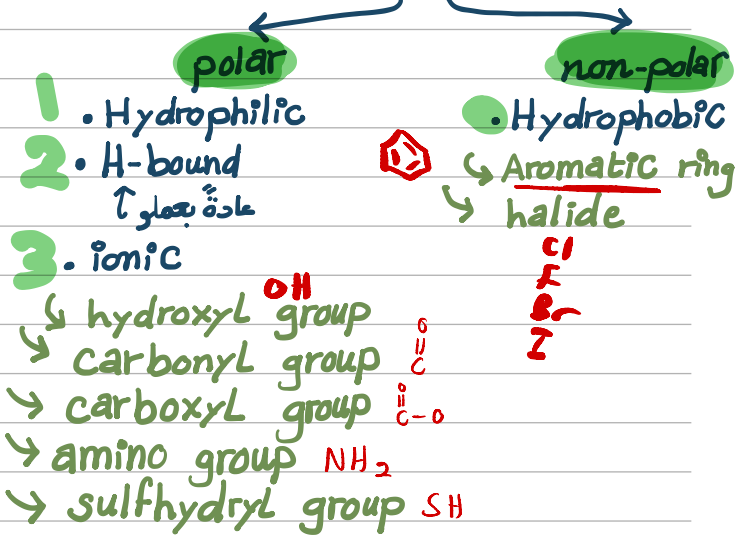 polar
1 . Hydrophilic
2 . H-bound
عادةً بتعطي
3 . ionic
OH
hydroxyl group
carbonyl group O
=
C
carboxyl group O
=
C-O
amino group NH2
sulfhydryl group SH
non-polar
. Hydrophobic
Aromatic ring
halide
Cl
F
Br
I